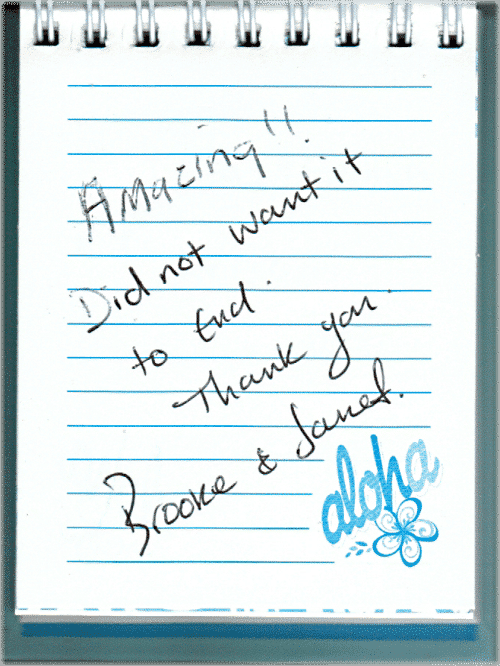 Amazing!!
Did not want it
to End.
Thank you.
Brooke & Janet.
aloha